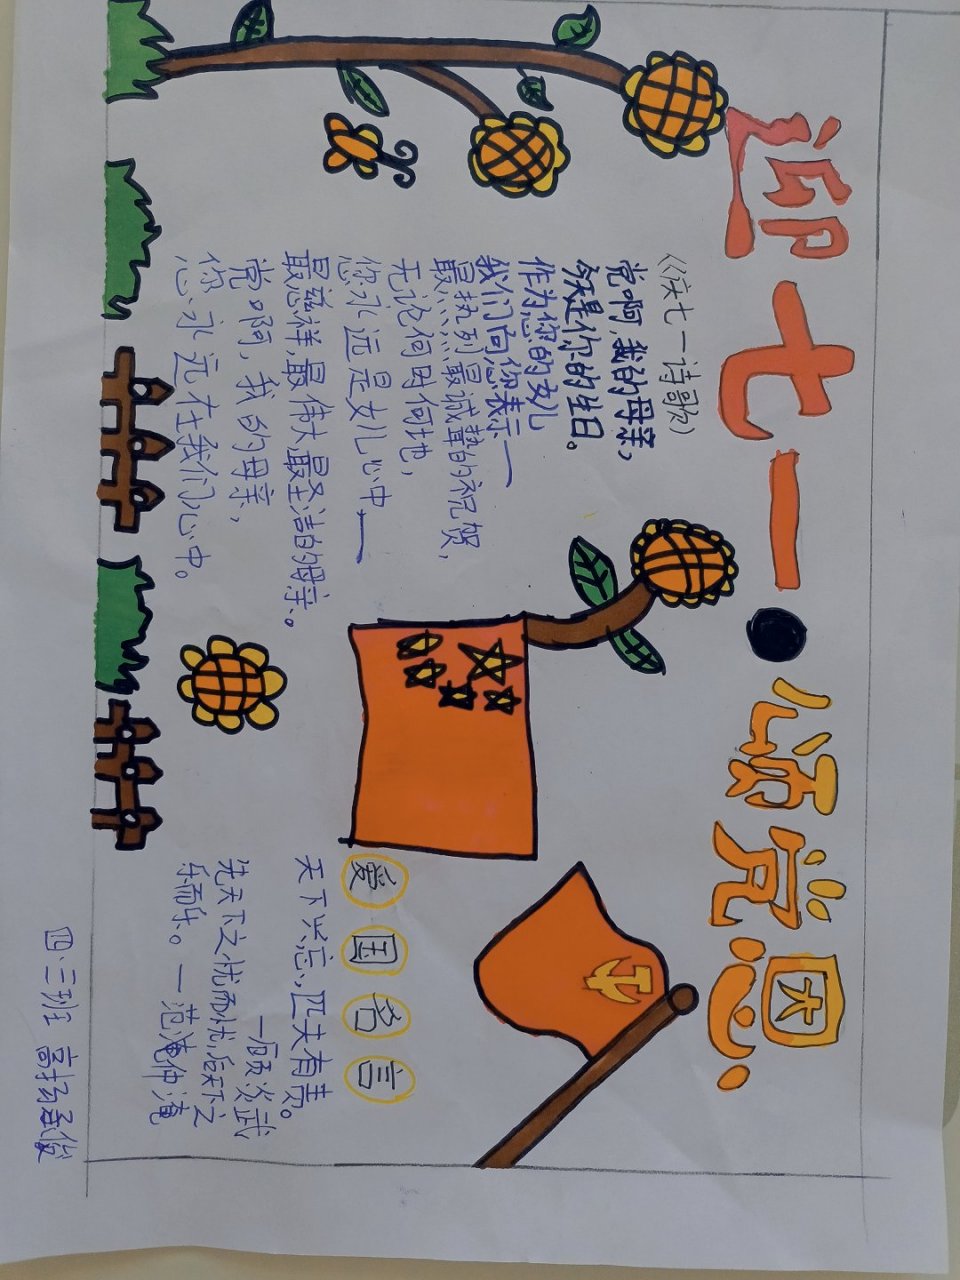 迎七一·颂党恩
《庆七一诗歌》
党啊,我的母亲,
领是你的生日。
作为您的女儿
我们向您表示一
最热烈最诚挚的祝贺,
无论何时何地,
您永远是女儿心中——
最慈祥,最伟大最圣洁的母亲。
党啊,我的母亲,
你永远在我们心中。
爱国名言
天下兴忘,匹夫有责。
一顾炎武
先天下之忧而忧,后天下之
乐而乐。一范淹仲淹
四.三班